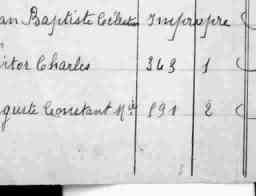 an Baptiste Célestin Impropre
ictor Charles 363 1
guste Constant Mie 891 2